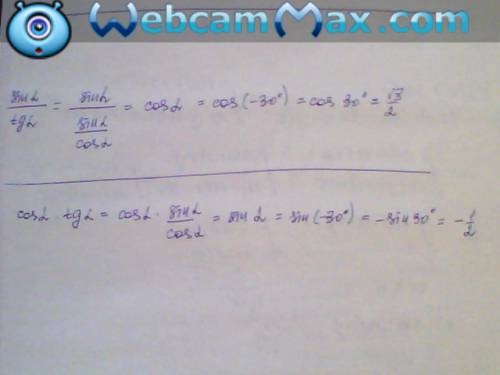 WebcamMax.com
sin α / tg α = sin α / (sin α / cos α) = cos α = cos(-30°) = cos 30° = √3 / 2
cos α · tg α = cos α · sin α / cos α = sin α = sin(-30°) = -sin 30° = -1/2